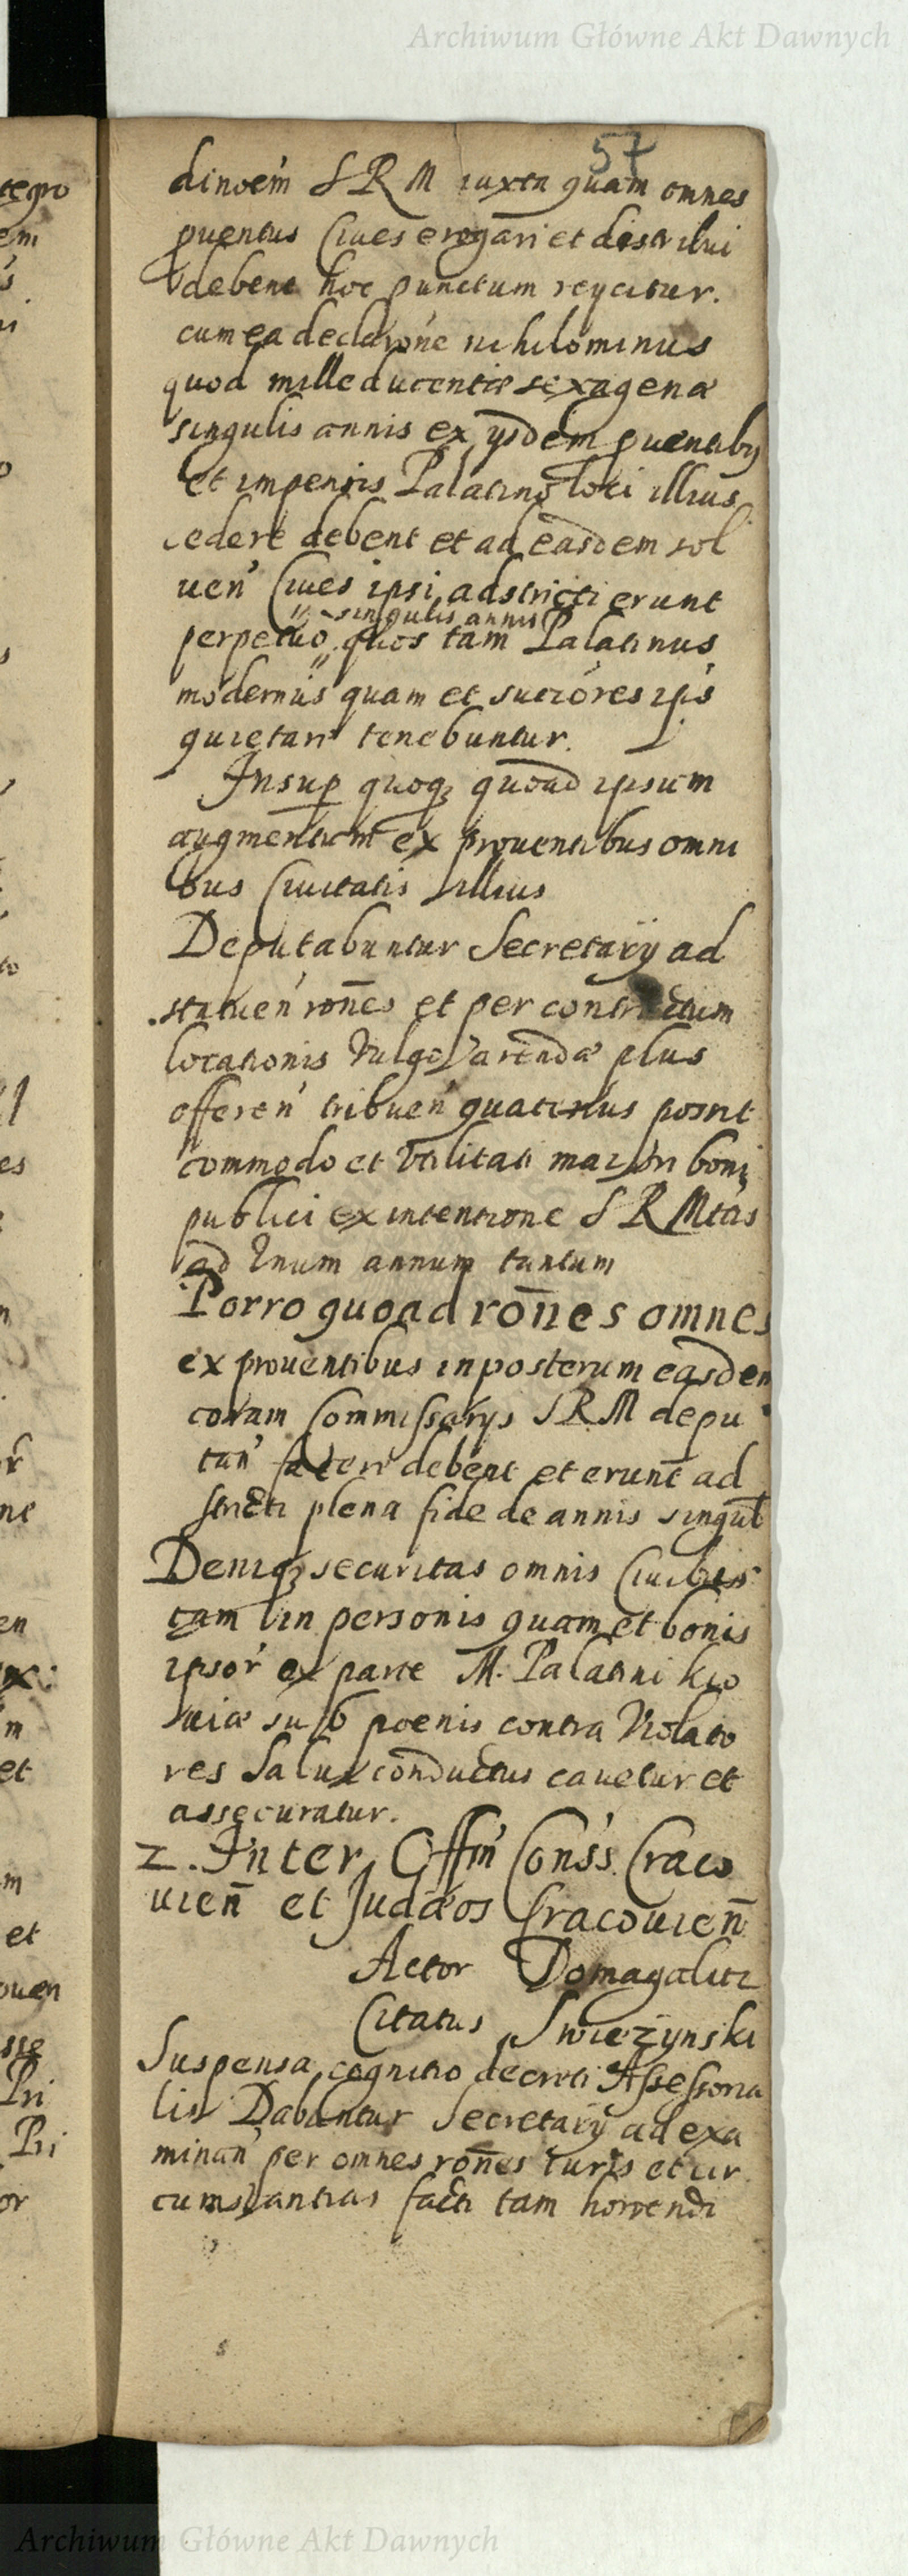 Archiwum Główne Akt Dawnych
57
dinoem S R M iuxta quam omnes
puentus Ciues erogari et distribui
debent hoc punctum reycitur.
cum ea declarone nihilominus
quod mille ducentæ sexagenæ
singulis annis ex ysdem puentiby
et impensis Palatino loci illius
cedere debent et ad easdem sol
uen Ciues ipsi adstricti erunt
singulis annis
perpetuo quos tam Palatinus
modernus quam et succores ips
quietari tenebuntur.
Insup quoq quoad ipsum
augmentum ex prouentibus omni
bus Ciuitatis illius
Deputabuntur Secretarÿ ad
statuen rones et per contractum
locationis vulgo arendæ plus
offeren tribuen quatenus possit
commodo et vtilitati maiori boni
publici ex intentione S R Mtis
ad Vnum annum tantum
Porro quoad rones omnes
ex prouentibus in posterum easdem
coram Commissarys S R M depu
tan debent et erunt ad
stricti plena fide de annis singul
Deniq securitas omnis Ciuibus
tam in personis quam et bonis
ipsor ex parte M. Palatini Kio
uiæ sub poenis contra Violato
res Salui conductus cauetur et
assecuratur.
2. Inter Offin Conss. Craco
uien et Judæos Cracouien
Actor Domagalicz
Citatus Swiezynski
Suspensa cognitio decreti Assessoria
lis Dabuntur Secretarÿ ad exa
minan per omnes rones iuris et cir
cumstantias facti tam horrendi
tegro
em
es
ne
en
m
et
m
et
ouen
sse
Pri
Pri
or
Archiwum Główne Akt Dawnych